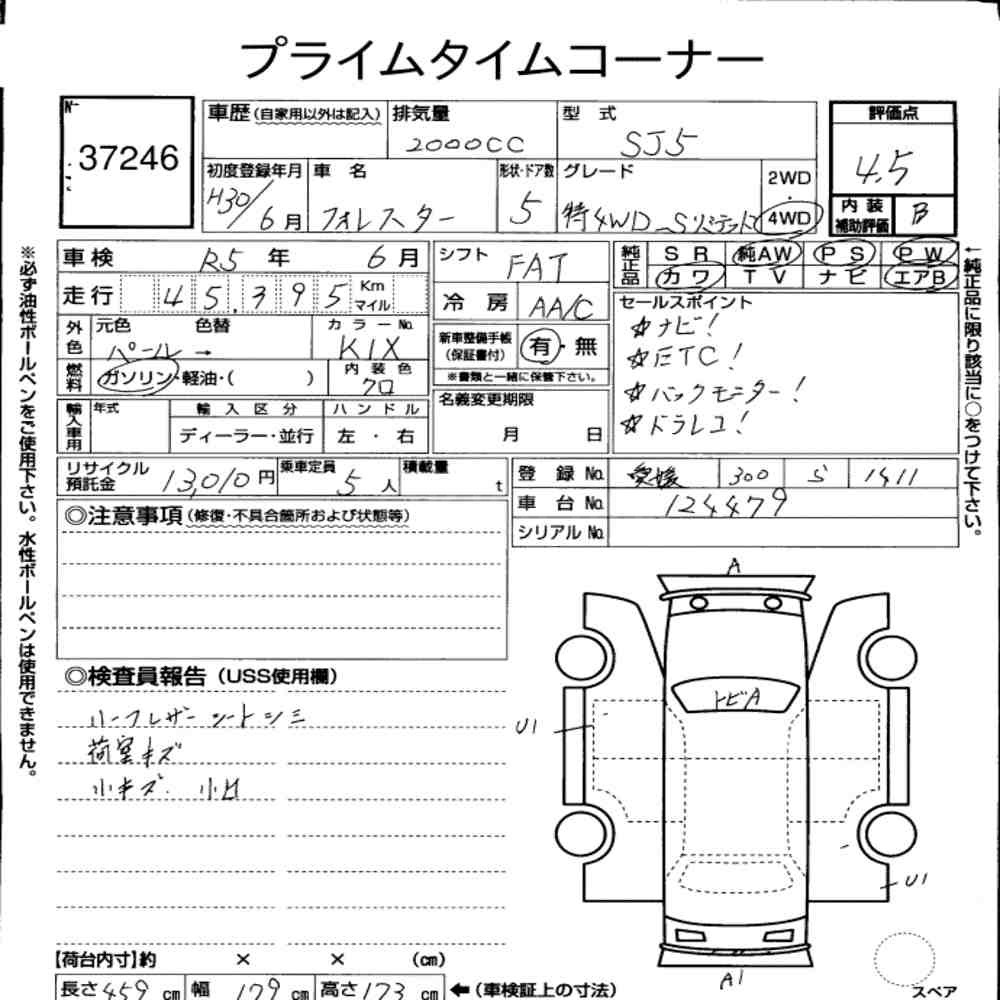 プライムタイムコーナー
№
37246
車歴(自家用以外は記入)
排気量
2000CC
型 式
SJ5
評価点
4.5
内装補助評価 B
初度登録年月
H30/6月
車 名
フォレスター
形状・ドア数
5
グレード
特4WD
2WD
4WD
車検 R5年 6月
走行 45,395 Km マイル
外色 元色 色替
パール →
カラーNo.
K1X
燃料 ガソリン・軽油・( )
内装色
クロ
輸入車用 年式 輸入区分 ハンドル
ディーラー・並行 左・右
シフト FAT
冷房 AA/C
新車整備手帳(保証書付) 有・無
※書類と一緒に保管下さい。
名義変更期限
月 日
純正品 SR 純AW PS PW
カワ TV ナビ エアB
セールスポイント
☆ナビ!
☆ETC!
☆バックモニター!
☆ドラレコ!
リサイクル預託金 13,010円
乗車定員 5人
積載量 t
登録No. 愛媛 300 ら 1411
車台No. 124479
シリアルNo.
◎注意事項(修復・不具合箇所および状態等)
◎検査員報告(USS使用欄)
ハーフレザーシートシミ
荷室キズ
小キズ. 小凹
A
トビA
U1
U1
A1
スペア
【荷台内寸】約 × × (cm)
長さ459cm 幅179cm 高さ173cm ←(車検証上の寸法)
※必ず油性ボールペンをご使用下さい。水性ボールペンは使用できません。
←純正品に限り該当に○をつけて下さい。